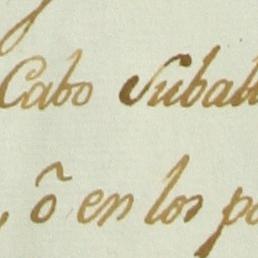 Cabo Subalt
, õ en los po